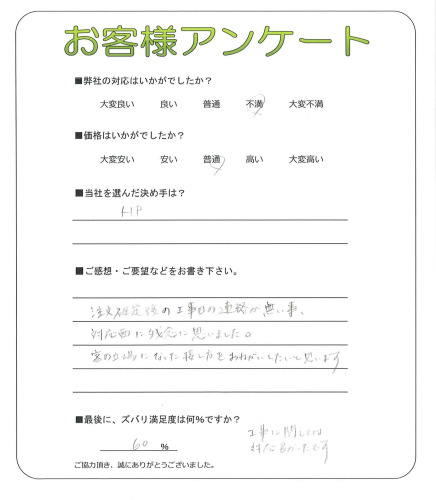 お客様アンケート
■弊社の対応はいかがでしたか？
大変良い 良い 普通 不満 大変不満
■価格はいかがでしたか？
大変安い 安い 普通 高い 大変高い
■当社を選んだ決め手は？
HP
■ご感想・ご要望などをお書き下さい。
注文確定後の工事日の連絡が無い事、
対応面に残念に思いました。
客の立場になった接し方をおねがいしたいと思います
■最後に、ズバリ満足度は何％ですか？
60 ％
工事に関しては
対応良かったです
ご協力頂き、誠にありがとうございました。